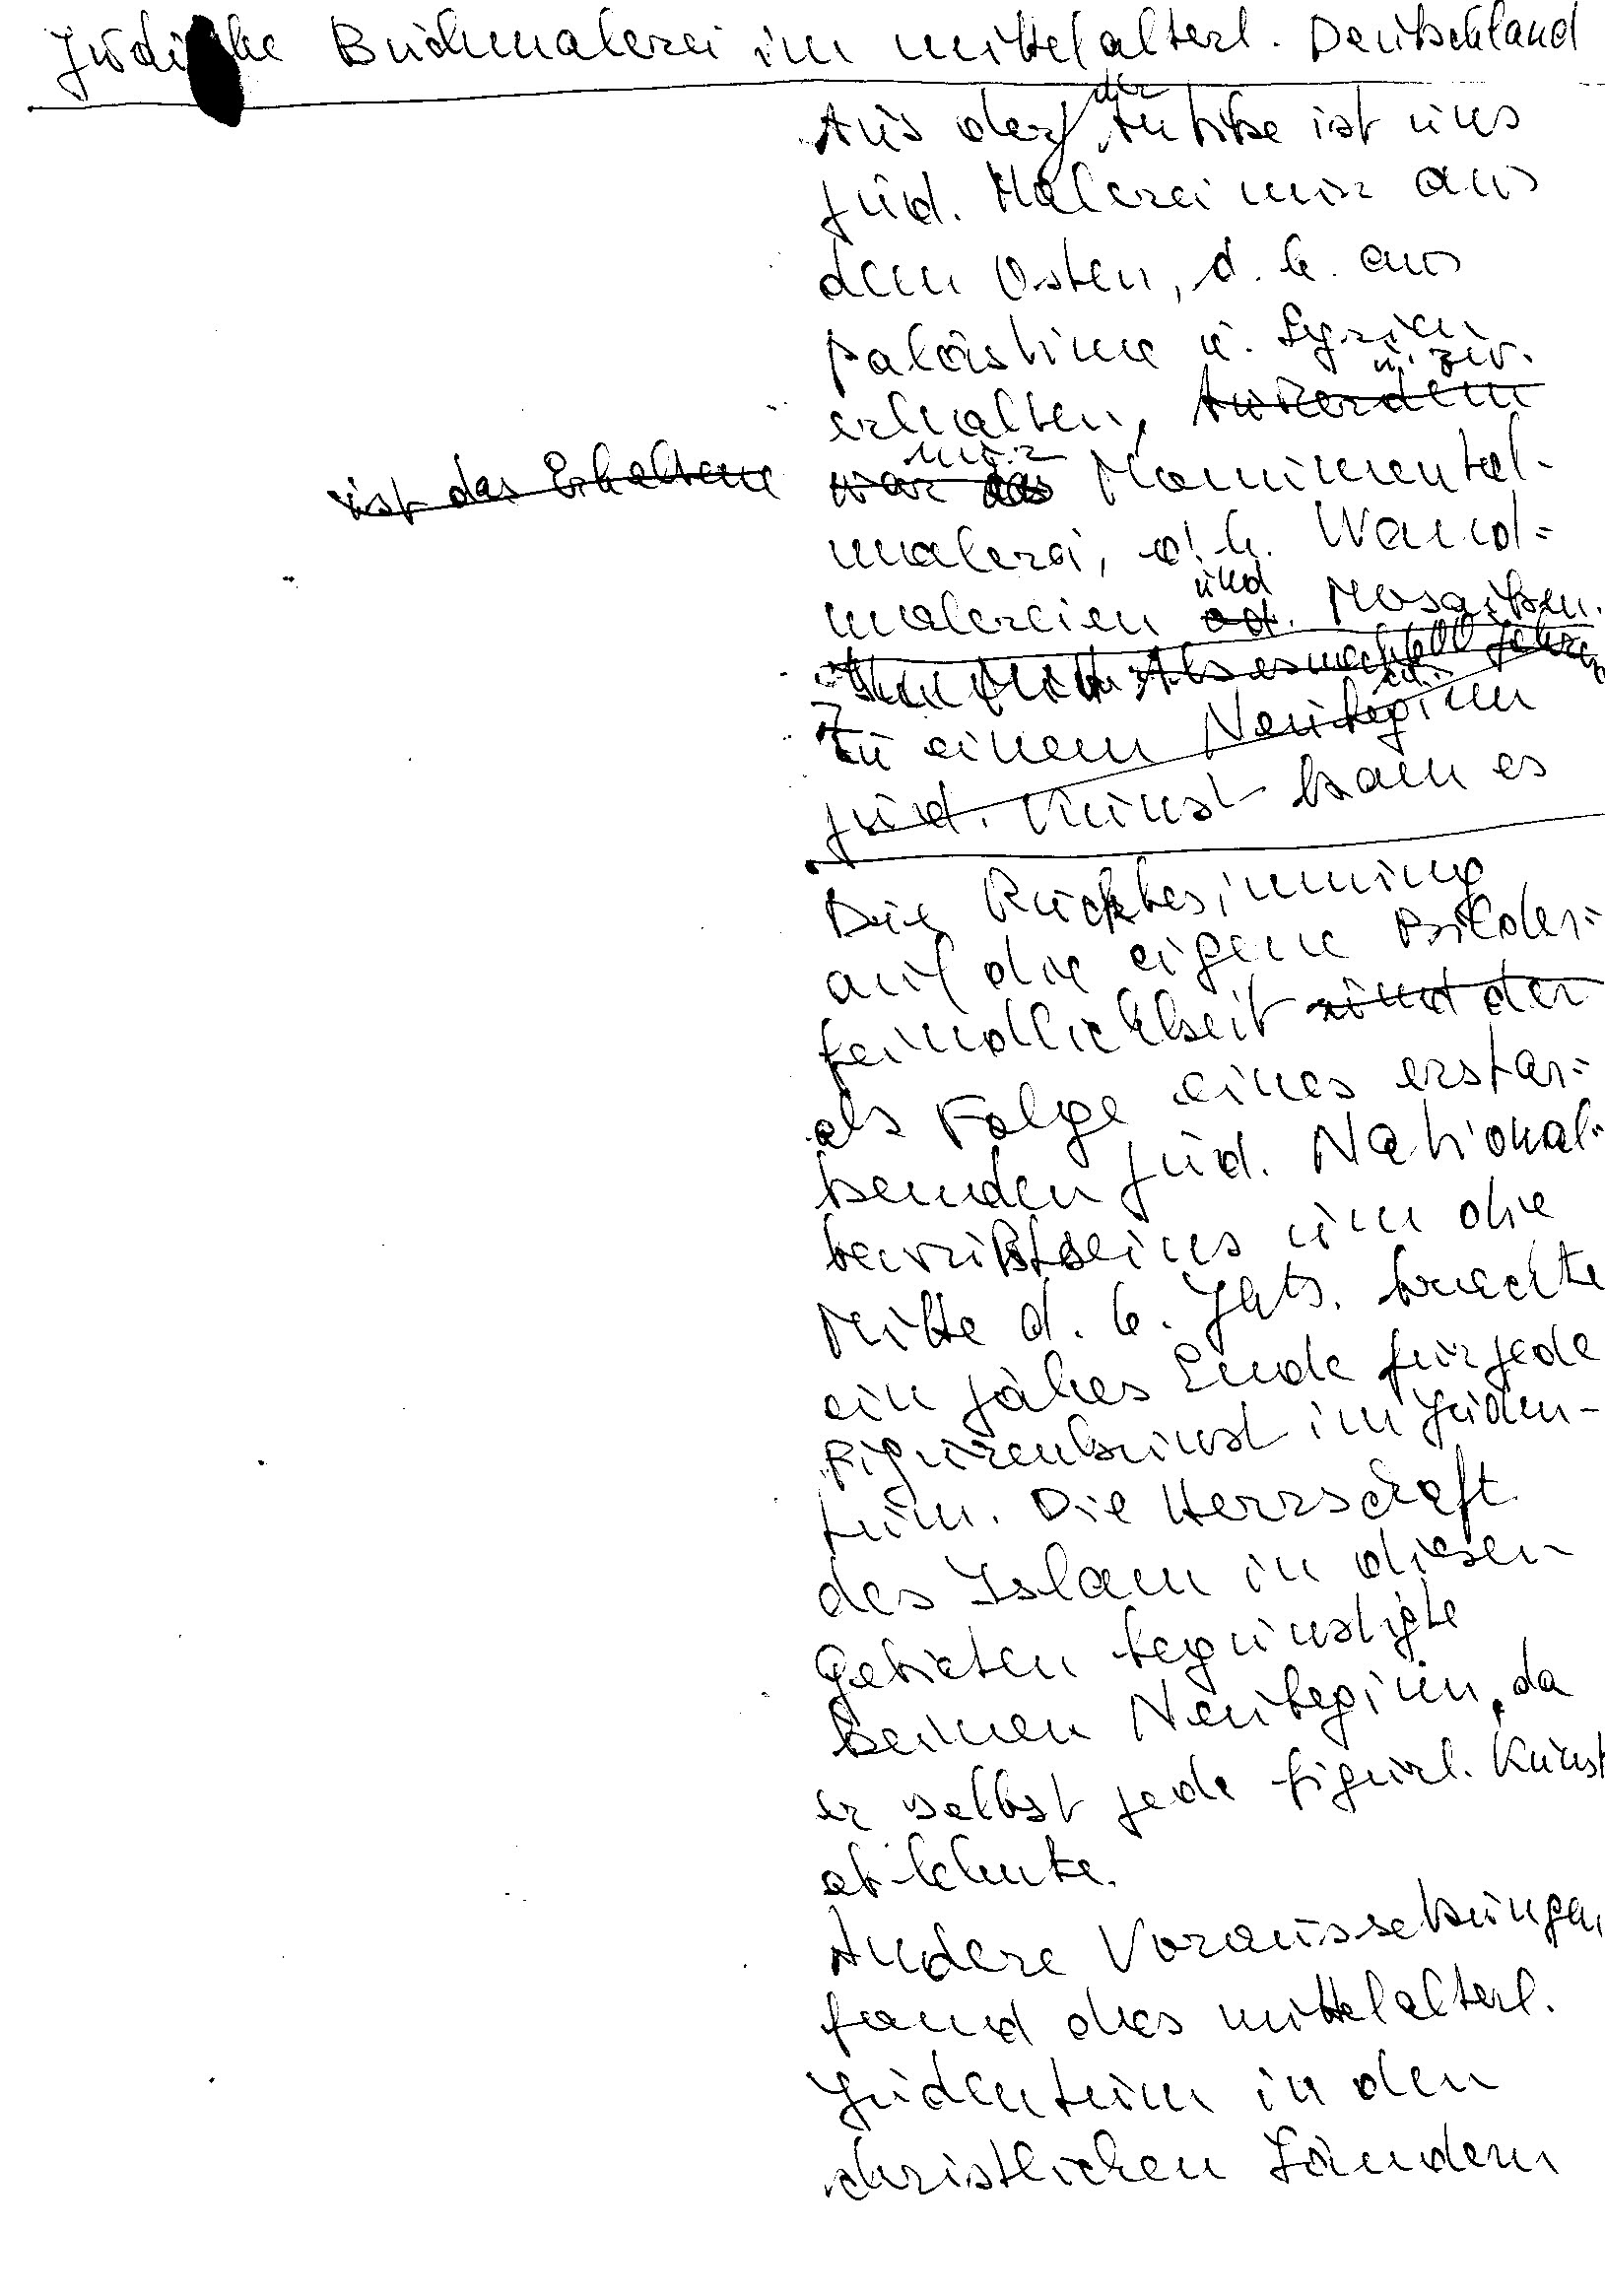 Jüdische Buchmalerei im mittelalterl. Deutschland
Aus der Antike ist uns
jüd. Malerei nur aus
dem Osten, d. h. aus
Palästina u. Syrien
u. zw.
erhalten, Außerdem
nur
ist das Erhaltene war das Monumental-
malerei, d. h. Wand-
und
malereien od. Mosaiken.
Als es nach 600 Jahren
Zu einem Neubeginn
jüd. Kunst kam es
Die Rückbesinnung
auf die eigene Bilder-
feindlichkeit und der
als Folge eines erstar-
kenden jüd. National-
bewußtseins um die
Mitte d. 6. Jhts. brachte
ein jähes Ende für jede
Figurenkunst im Juden-
tum. Die Herrschaft
des Islam in diesen
Gebieten begünstigte
keinen Neubeginn, da
er selbst jede figürl. Kunst
ablehnte.
Andere Voraussetzungen
fand das mittelalterl.
Judentum in den
christlichen Ländern